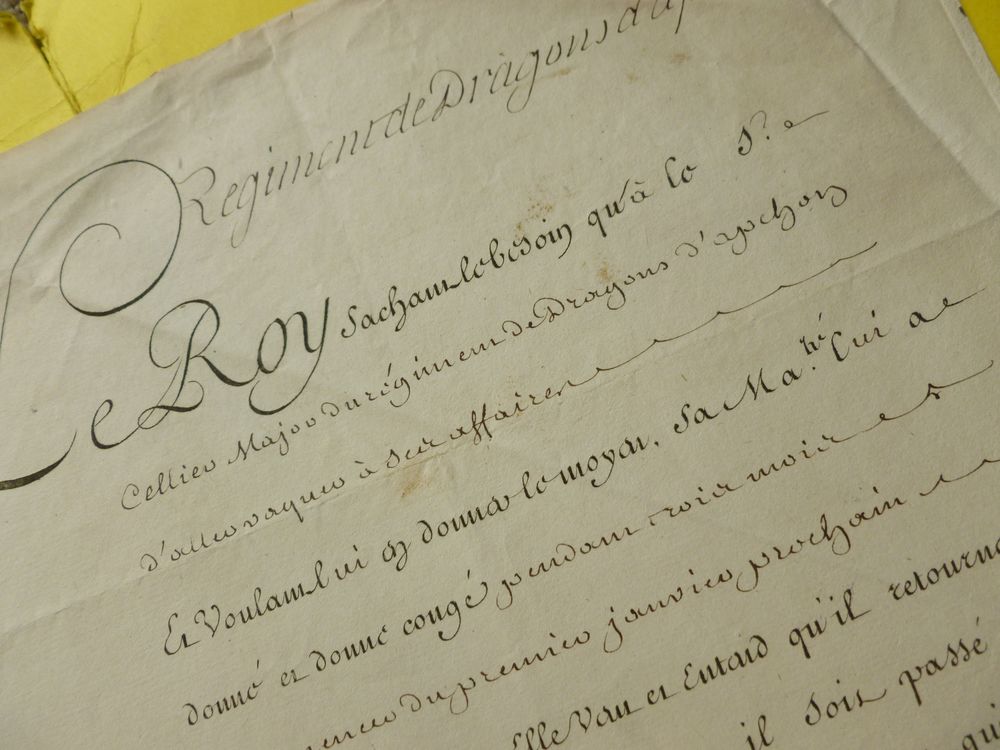 Régiment de Dragons d'ap
Le Roy sachant le besoin qu'à le S.r
Cellier Major du régiment de Dragons d'apchon
d'aller vaquer à ses affaires
Et Voulant lui en donner le moyen, Sa Ma.té lui a
donné et donne congé pendant trois mois
du premier janvier prochain
Elle Veut et Entend qu'il retourne
il soit passé
qui